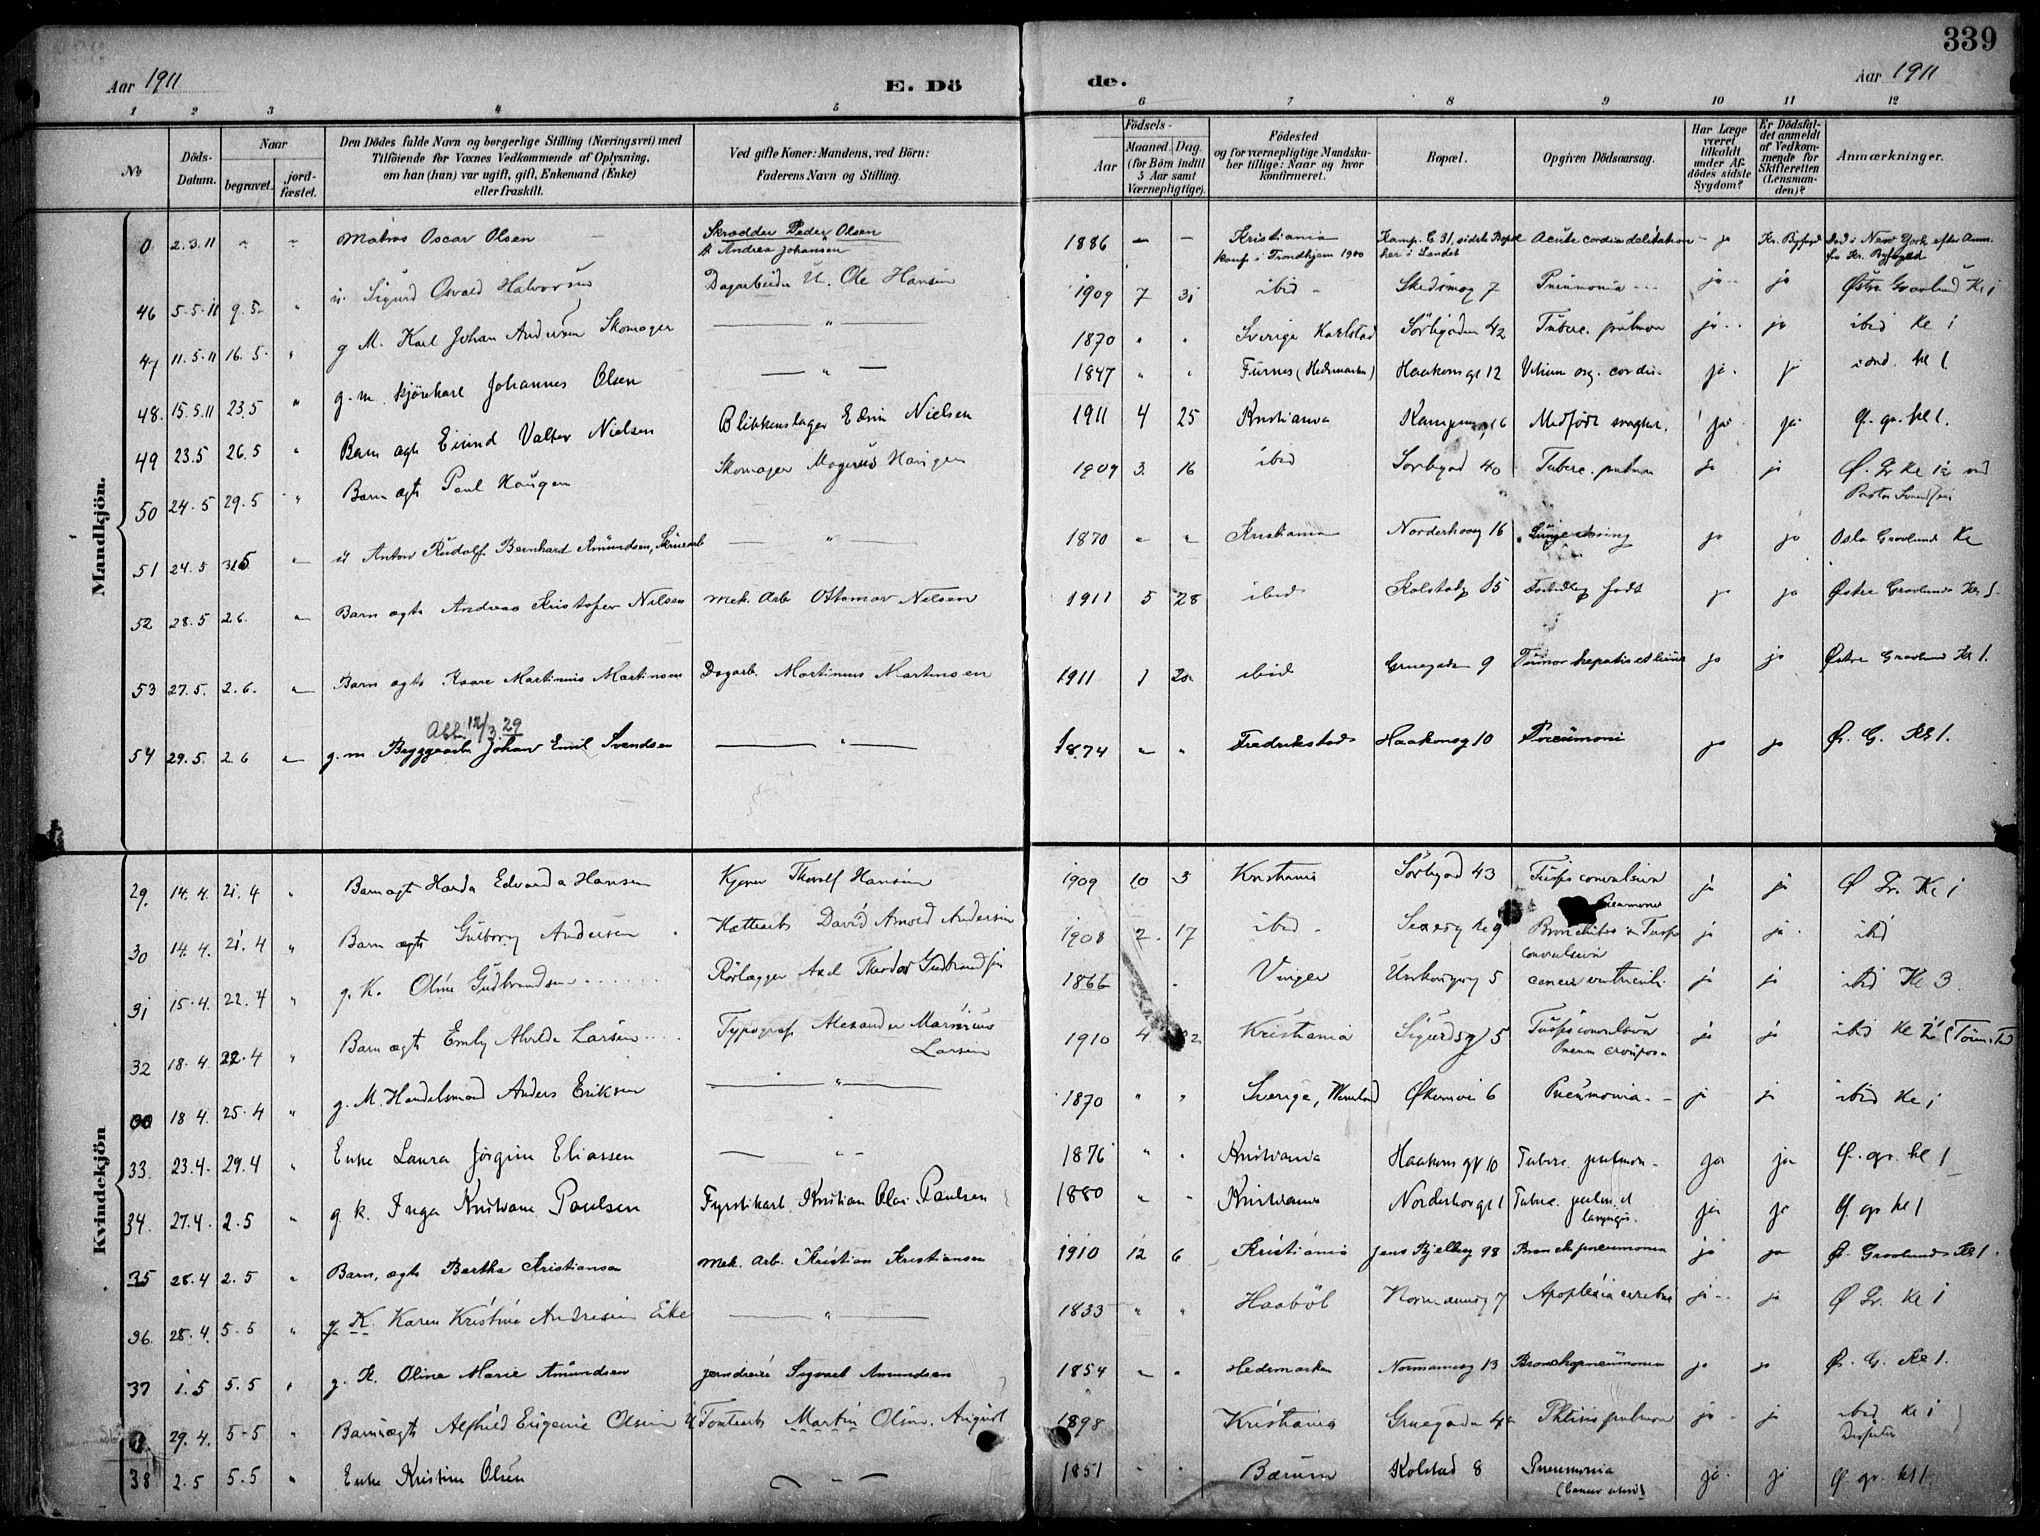 339
Aar 1911 E. Dö de. Aar 1911
1 2 3 4 5 6 7 8 9 10 11 12
No
Döds-Datum.
Naar
begravet.
jord-fæstet.
Den Dödes fulde Navn og borgerlige Stilling (Næringsvei) med
Tilföiende for Voxnes Vedkommende af Oplysning,
om han (hun) var ugift, gift, Enkemand (Enke)
eller fraskilt.
Ved gifte Koner: Mandens, ved Börn:
Faderens Navn og Stilling.
Födsels-
Aar
Maaned. Dag.
(for Börn indtil
5 Aar samt
Værnepligtige).
Födested
og for værnepligtige Mandska-
ber tillige: Naar og hvor
konfirmeret.
Bopæl.
Opgiven Dödsaarsag.
Har Læge
været
tilkaldt
under Af-
dödes sidste
Sygdom?
Er Dödsfal-
det anmeldt
af Vedkom-
mende for
Skifteretten
(Lensman-
den)?
Anmærkninger.
Mandkjön.
0 2.3.11 " " Matros Oscar Olsen — Skrædder Peder Olsen 1886 — — Kristiania Kamp. G. 31, sidste Bopæl Acute cordia dilitation ja Kr. Byfogd Död i New York efter Anm.
& Andrea Johansen konf. i Trondhjem 1900 her i Landet fra Kr. Byfoged
46 5.5.11 9.5 " u. Sigurd Osvald Halvorsen Dagarbeider U. Ole Hansen 1909 7 31 ibid Skedsmog 7 Pneumonia ja ja Østre Gravlund Kl 1
47 11.5.11 16.5 " g M. Karl Johan Andersen Skomager — " — 1870 " " Sverige Karlstad Sörbygaden 42 Tuberc. pulmon ja ja ibid Kl 1
48. 15.5.11 23.5 " g. m. Kjörekarl Johannes Olsen — " — 1847 " " Furnes (Hedemarken) Haakons gt 12 Vitium org. cordis. ja ja ibid. kl 1
49 23.5 26.5 " Barn ægte Eivind Valter Nielsen Blikkenslager Edvin Nielsen 1911 4 25 Kristiania Kampeng 16 Medfödt svaghet. ja ja Ø. gr. kl 1.
50 24.5 29.5 " Barn ægte Paul Haugen Skomager Magnus Haugen 1909 3. 16 ibid Sörbygad 40 Tuberc. pulmon ja ja Ø. Gr Kl 1 ved
Pastor Svendsen
51 24.5 31.5 " u Anton Rudolf Bernhard Amundsen, — " — 1870 " " Kristiania Norderhovg 16 ja ja Oslo Gravlund Kl
52 28.5 2.6. " Barn ægte Andreas Kristofer Nilsen Mek. Arb. Ottomar Nilsen 1911 5 28 ibid Kolstadg 15 Fortidlig født ja ja Østre Gravlunds Kl 1.
53 27.5. 2.6. " Barn ægte Kaare Martinius Martinsen Dagarb. Martinius Martinsen 1911 1 20 ibid Gruegaden 9 Tumor hepatis et lienis ja ja Østre Gravlund Kl 1.
12/3.29
54 29.5. 2.6 " g. m. Bryggearb. Johan Emil Svendsen — " — 1874 " " Fredrikstad Haakonsg 10 Pneumoni ja ja Ø. G. Kl 1.
Kvindekjön
29. 14.4. 21.4 " Barn ægte Edvarda Hansen Thoralf Hansen 1909 10 3 Kristiania Sörbygad 43 Tussis convulsiva ja ja Ø Gr. Kl 1
Pneumoni
30 14.4. 21.4 " Barn ægte Gulborg Andersen Hattearb David Arnold Andersen 1908 2 17 ibid Bronchitis Tussis ja ja ibid
convulsiva
31 15.4. 22.4 " g. K. Oline Gudbrandsen Rörlægger Axel Theodor Gudbrandsen 1866 " Vinger 5 cancer ventriculi. ja ja ibid Kl 3
32 18.4. 22.4 " Barn ægte Emly Alvilde Larsen Typograf Alexander Marinius 1910 4 Kristiania Sigurdsg 5 Tussis convulsiva ja ja ibid Kl
Larsen Pneum crouposa
00 18.4. 25.4 " g. M. Handelsmand Anders Eriksen — " — 1870 " " Sverige, Wermland Økernvei 6 Pneumonia ja ja ibid Kl 1
33. 23.4. 29.4 " Enke Laura Jörgine Eliassen — " — 1876 " " Kristiania Haakons gt 10 Tuberc. pulmon. ja ja Ø. gr. kl 1
34. 27.4. 2.5 " g. k. Inga Kristiane Paulsen Fyrstikarb. Kristian Olai Paulsen 1880 " " Kristiania Norderhovgt 1 Tuberc. pulm. et ja ja Ø. gr kl 1
laryngis.
35 28.4 2.5 " Barn, ægte Bertha Kristiansen Mek. Arb. Kristian Kristiansen 1910 12 6 Kristiania Jens Bjelkesg 98 Bronchopneumonia ja ja Ø. Gravlunds Kl 1.
36. 28.4. 5.5 " g. K. Karen Kristine Andresen Enke — " — 1833 " " Haaböl Normannsg 7 Apoplexia cerebri ja ja Ø Gr. Kl 1
37 1.5 5.5 " g. K. Oline Marie Amundsen Jerndreier Sigvart Amundsen 1854 " " Hedemarken Normannsg 13 Bronchopneumonia ja ja Ø. G. Kl 1.
29.4. 5.5 " Barn ægte Alfhild Eugenie Olsen Martin Olsen. August 1898 Kristiania Gruegaden 4 Phtisis pulmon ja ja ibid Kl 1
38 2.5 5.5 " Enke Kristine Olsen — " — 1851 " " Bærum Kolstad 8 Pneumonia ja ja Ø. gr. kl 1.
(Cancer uteri)